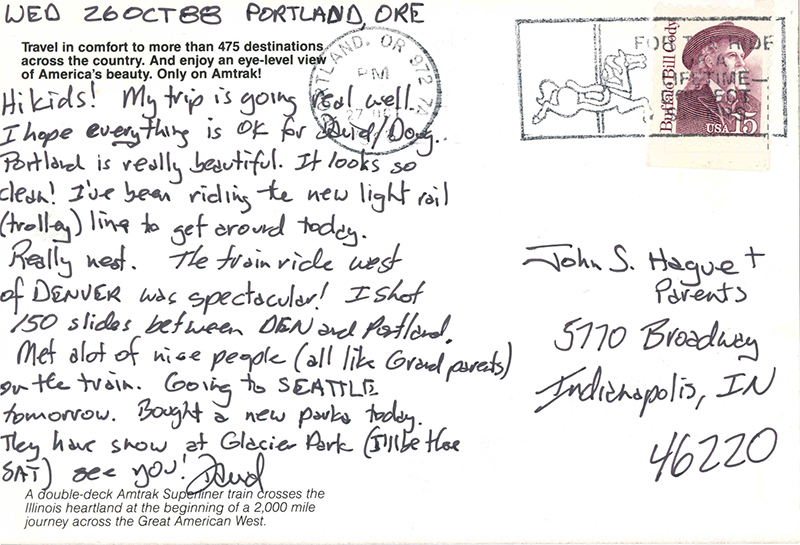 WED 26 OCT 88 PORTLAND, ORE
Travel in comfort to more than 475 destinations
across the country. And enjoy an eye-level view
of America's beauty. Only on Amtrak!
Hi kids! My trip is going real well.
I hope everything is OK for David/Doug..
Portland is really beautiful. It looks so
clean! I've been riding the new light rail
(trolley) line to get around today.
Really neat. The train ride west
of DENVER was spectacular! I shot
150 slides between DEN and Portland.
Met alot of nice people (all like Grandparents)
on the train. Going to SEATTLE
tomorrow. Bought a new parka today.
They have snow at Glacier Park (I'll be there
SAT) see you! David
A double-deck Amtrak Superliner train crosses the
Illinois heartland at the beginning of a 2,000 mile
journey across the Great American West.
PORTLAND, OR 972 7A
PM
27
FOR THE RIDE
OF A
LIFETIME—
Buffalo Bill Cody
USA 15
John S. Hague +
Parents
5770 Broadway
Indianapolis, IN
46220